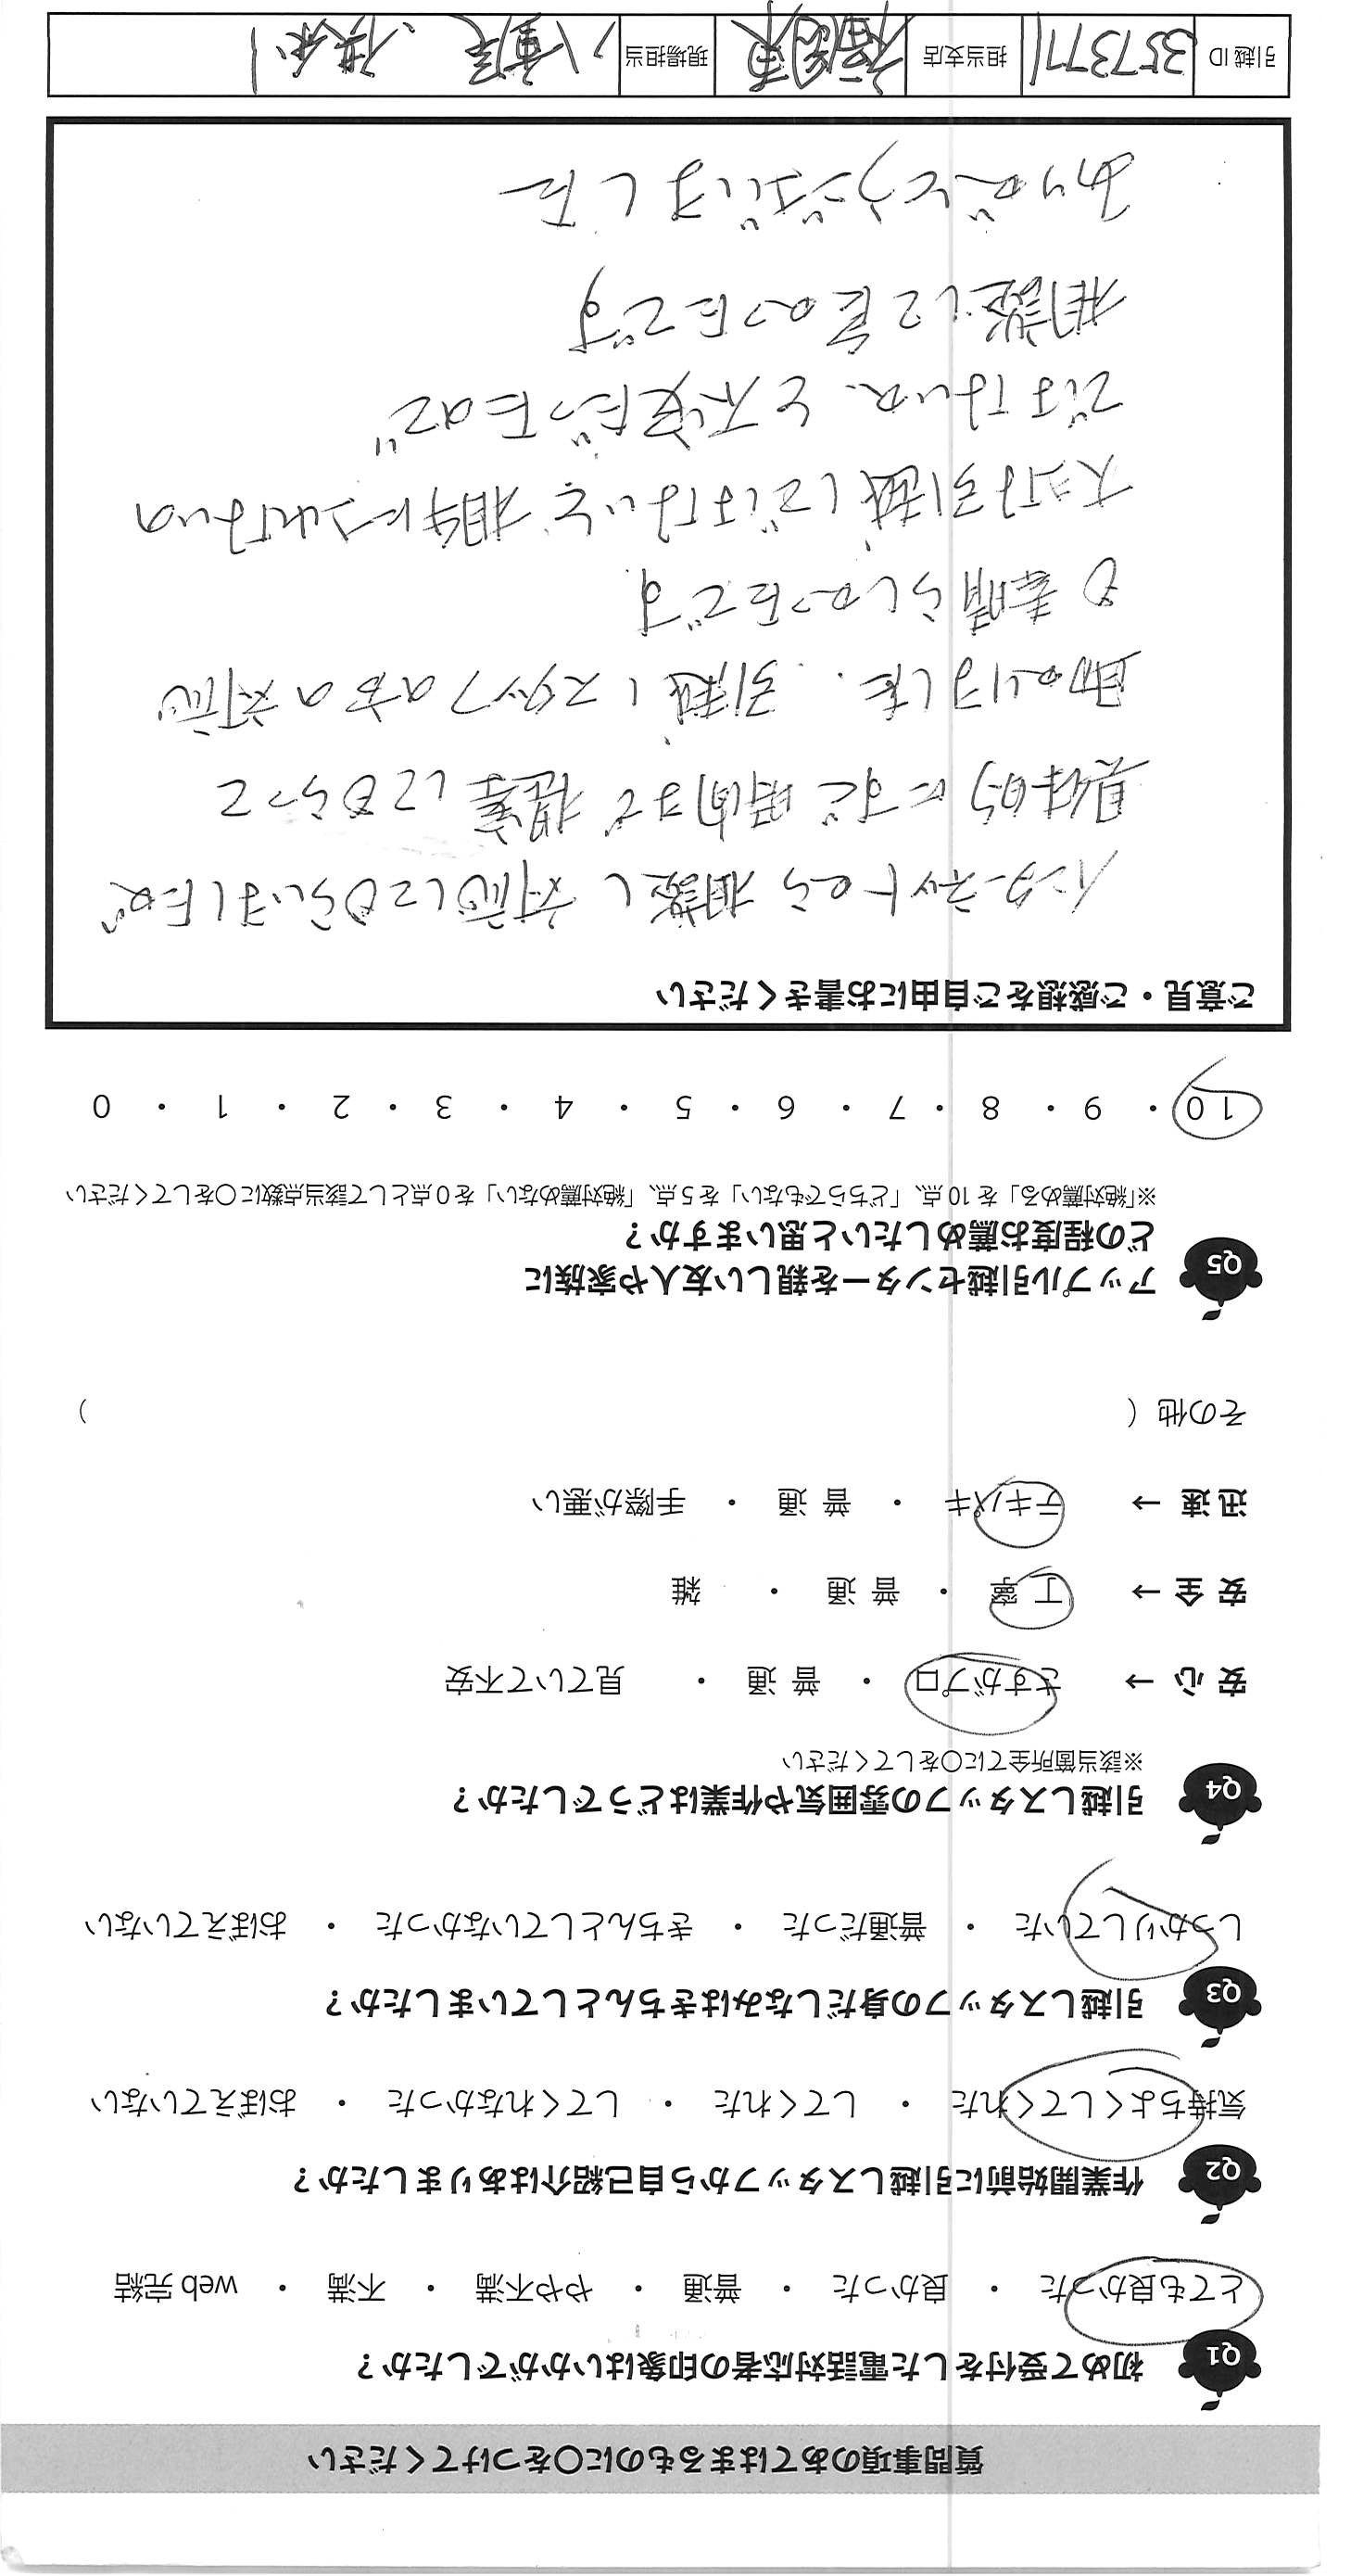 質問事項のあてはまるものに〇をつけてください
Q1 初めて受付をした電話対応者の印象はいかがでしたか？
とても良かった ・ 良かった ・ 普通 ・ やや不満 ・ 不満 ・ web完結
Q2 作業開始前に引越しスタッフから自己紹介はありましたか？
気持ちよくしてくれた ・ してくれた ・ してくれなかった ・ おぼえていない
Q3 引越しスタッフの身だしなみはきちんとしていましたか？
しっかりしていた ・ 普通だった ・ きちんとしていなかった ・ おぼえていない
Q4 引越しスタッフの雰囲気や作業はどうでしたか？
※該当箇所全てに〇をしてください
安心 → さすがプロ ・ 普通 ・ 見ていて不安
安全 → 丁寧 ・ 普通 ・ 雑
迅速 → テキパキ ・ 普通 ・ 手際が悪い
その他（ ）
Q5 アップル引越センターを親しい友人や家族に
どの程度お薦めしたいと思いますか？
※「絶対薦める」を10点、「どちらでもない」を5点、「絶対薦めない」を0点として該当点数に〇をしてください
10 ・ 9 ・ 8 ・ 7 ・ 6 ・ 5 ・ 4 ・ 3 ・ 2 ・ 1 ・ 0
ご意見・ご感想をご自由にお書きください
インターネットから相談し対応してもらいましたが
具体的にすぐ時間まで提案してもらって
助かりました. 引越しスタッフの方の対応
も素晴らしかったです
大きな引越しではないと相手にされないの
ではないか、と不安だったので
相談して良かったです
ありがとうございました
引越ID 3573711 担当支店 福岡東 現場担当 八重尾